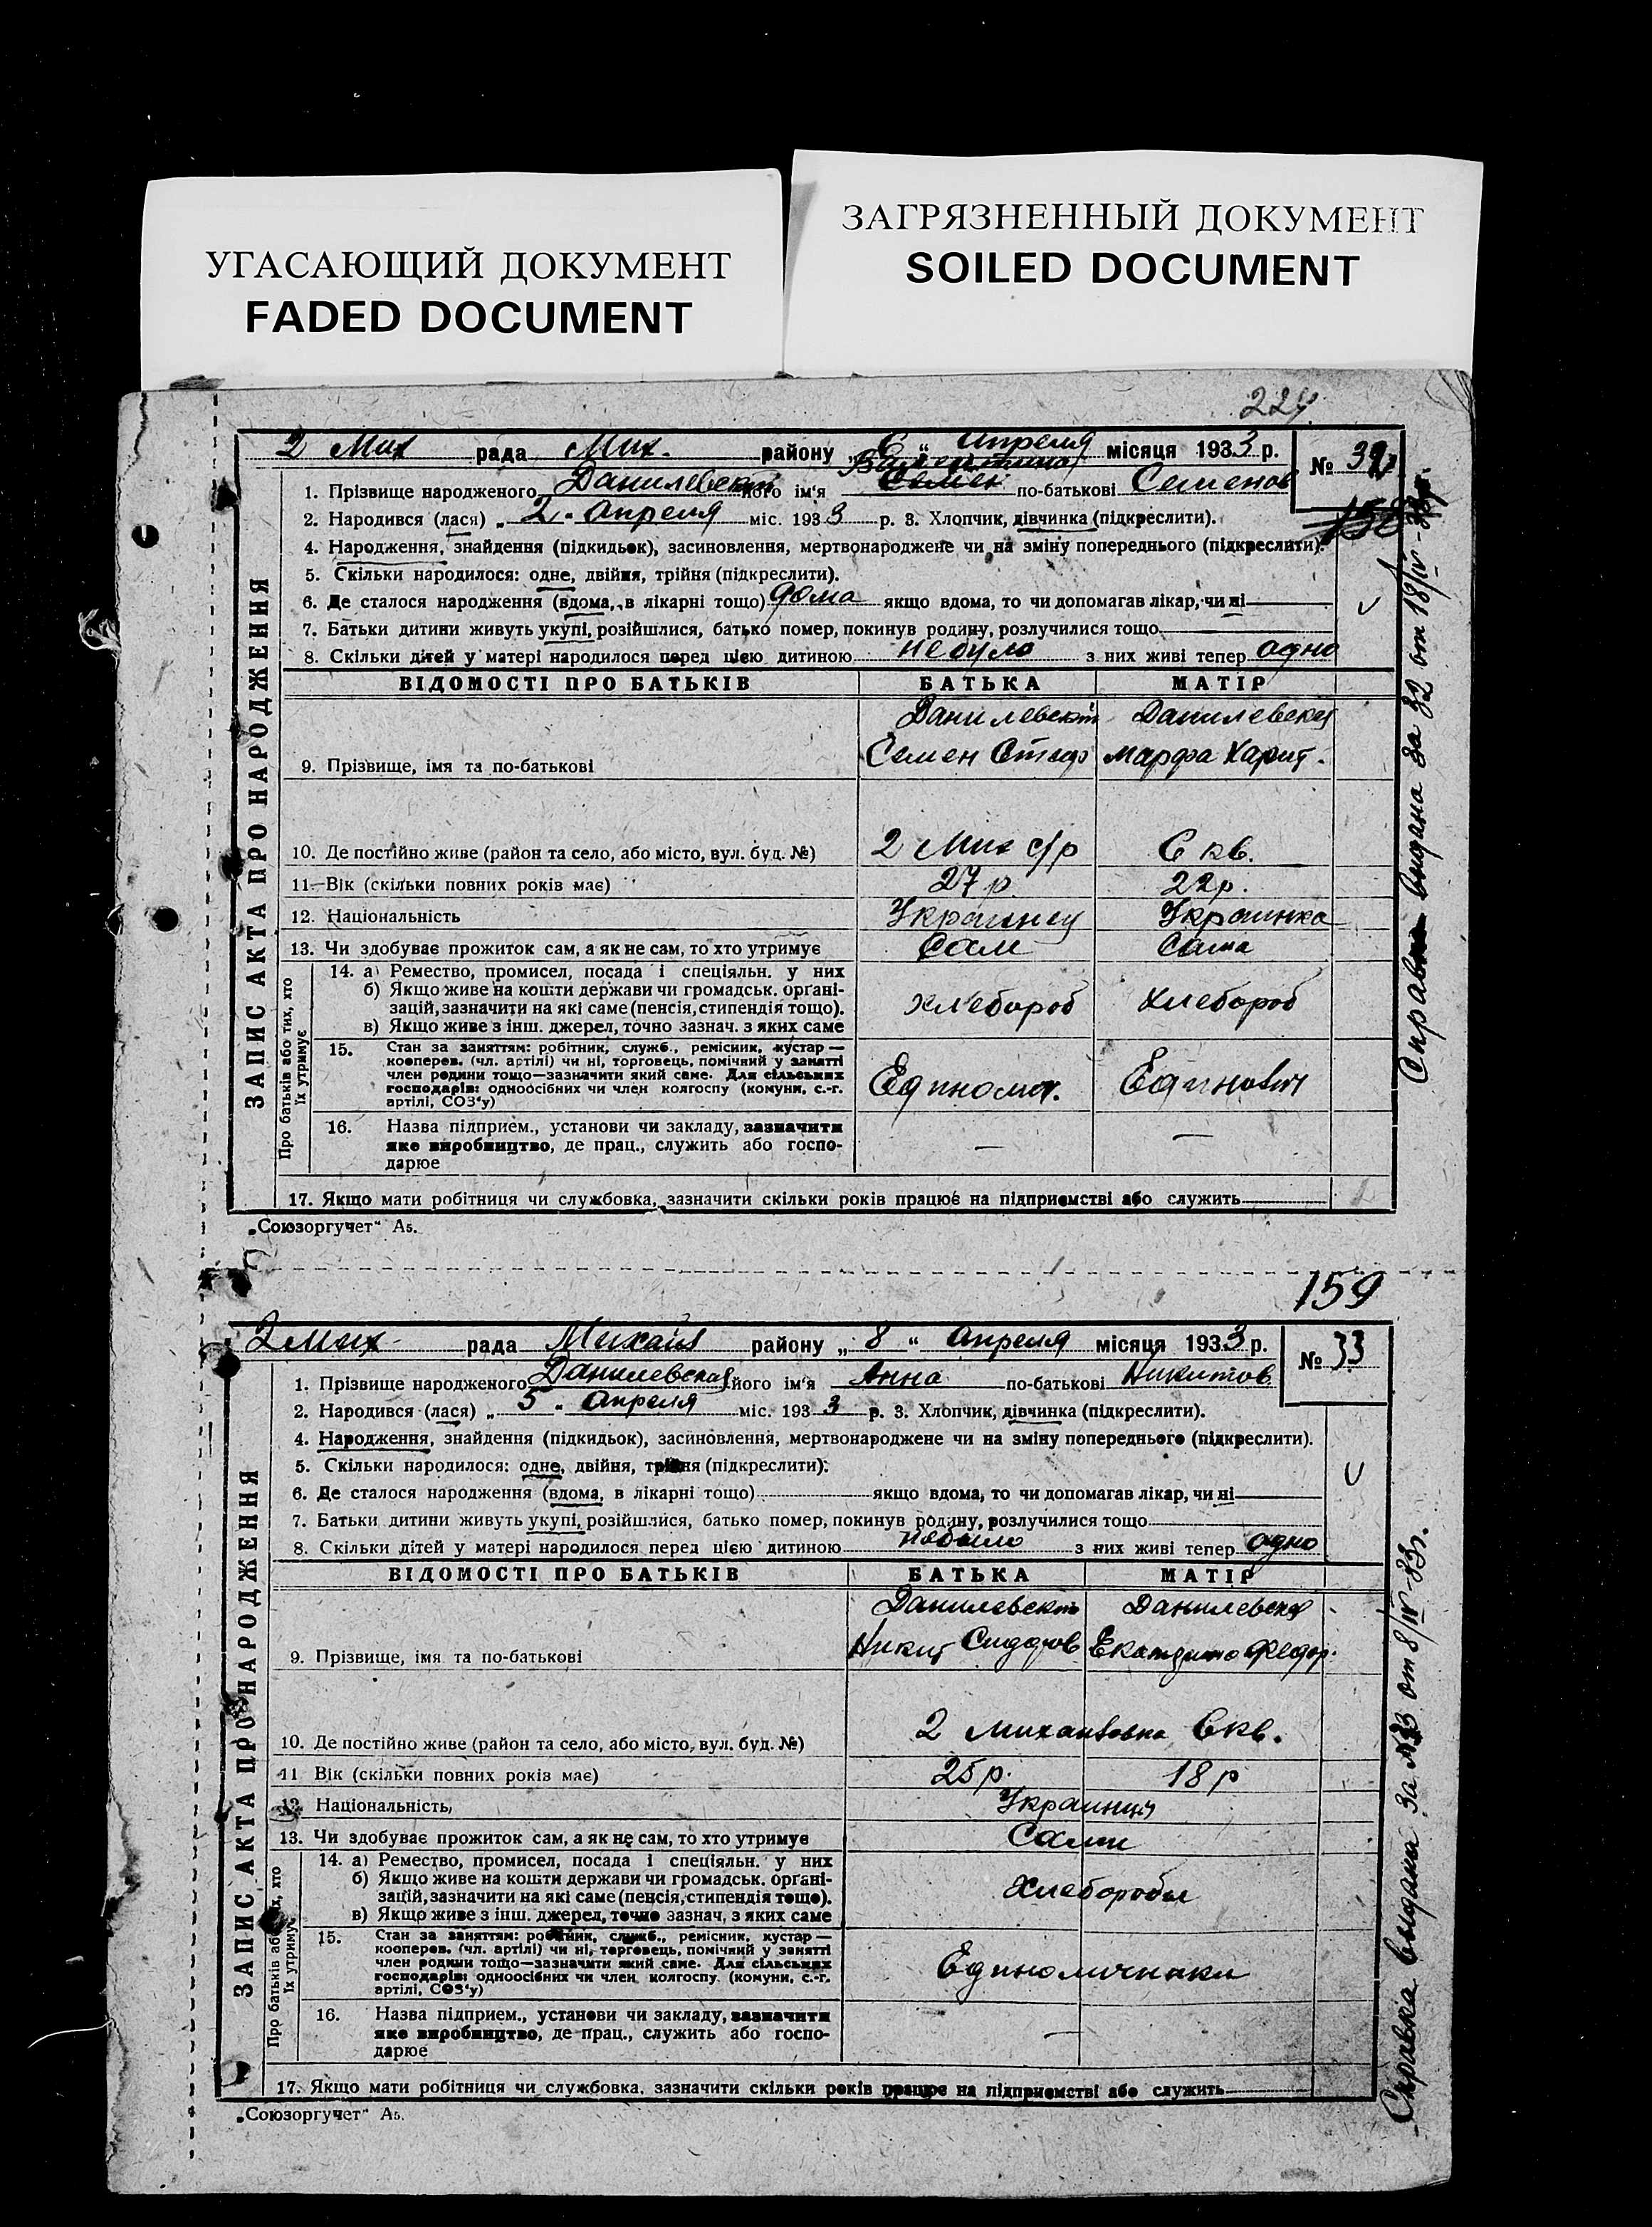 УГАСАЮЩИЙ ДОКУМЕНТ
FADED DOCUMENT
ЗАГРЯЗНЕННЫЙ ДОКУМЕНТ
SOILED DOCUMENT
ЗАПИС АКТА ПРО НАРОДЖЕННЯ
2 Мих рада Мих. району „ 6 “ Апреля місяця 1933 р.
№ 32
158
1. Прізвище народженого Данилевский його ім'я Валентина Семен по-батькові Семенов
2. Народився (лася) „ 2 “ Апреля міс. 1933 р. 3. Хлопчик, дівчинка (підкреслити).
4. Народження, знайдення (підкидьок), засиновлення, мертвонароджене чи на зміну попереднього (підкреслити).
5. Скільки народилося: одне, двійня, трійня (підкреслити).
6. Де сталося народження (вдома, в лікарні тощо) дома якщо вдома, то чи допомагав лікар, чи ні
7. Батьки дитини живуть укупі, розійшлися, батько помер, покинув родину, розлучилися тощо
8. Скільки дітей у матері народилося перед цією дитиною небуло з них живі тепер одно
ВІДОМОСТІ ПРО БАТЬКІВ БАТЬКА МАТІР
Данилевский Данилевская
9. Прізвище, імя та по-батькові Семен Марфа Харит.
10. Де постійно живе (район та село, або місто, вул. буд. №) 2 Мих с/р 6 кв.
11. Вік (скільки повних років має) 27 р 22 р.
12. Національність Украинец Украинка
13. Чи здобуває прожиток сам, а як не сам, то хто утримує Сам Сама
Про батьків або тих, хто їх утримує
14. а) Ремество, промисел, посада і спеціяльн. у них
б) Якщо живе на кошти держави чи громадськ. органі-
зацій, зазначити на які саме (пенсія, стипендія тощо). хлебороб хлебороб
в) Якщо живе з інш. джерел, точно зазнач. з яких саме
15. Стан за заняттям: робітник, служб., ремісник, кустар —
кооперов. (чл. артілі) чи ні, торговець, помічний у занятті
член родини тощо—зазначити який саме. Для сільських
господарів: одноосібних чи член колгоспу (комуни, с.-г. Единолич.
артілі, СОЗ'у)
16. Назва підприєм., установи чи закладу, зазначити
яке виробництво, де прац., служить або госпо- — —
дарює
17. Якщо мати робітниця чи службовка, зазначити скільки років працює на підприємстві або служить
„Союзоргучет“ А5.
выдана за 32 от 18/IV-33г.
159
ЗАПИС АКТА ПРО НАРОДЖЕННЯ
2 мих рада Михайл району „ 8 “ Апреля місяця 1933 р.
№ 33
1. Прізвище народженого Данилевская його ім'я Анна по-батькові Никитов
2. Народився (лася) „ 5 “ Апреля міс. 1933 р. 3. Хлопчик, дівчинка (підкреслити).
4. Народження, знайдення (підкидьок), засиновлення, мертвонароджене чи на зміну попереднього (підкреслити).
5. Скільки народилося: одне, двійня, трійня (підкреслити).
6. Де сталося народження (вдома, в лікарні тощо) якщо вдома, то чи допомагав лікар, чи ні
7. Батьки дитини живуть укупі, розійшлися, батько помер, покинув родину, розлучилися тощо
8. Скільки дітей у матері народилося перед цією дитиною небыло з них живі тепер одно
ВІДОМОСТІ ПРО БАТЬКІВ БАТЬКА МАТІР
Данилевский Данилевская
9. Прізвище, імя та по-батькові Никит Сидоров Екатерина Федор.
10. Де постійно живе (район та село, або місто, вул. буд. №) 2 Михайловка 6 кв.
11 Вік (скільки повних років має) 25 р. 18 р
12. Національність, Украинцы
13. Чи здобуває прожиток сам, а як не сам, то хто утримує Сами
Про батьків або тих, хто їх утримує
14. а) Ремество, промисел, посада і спеціяльн. у них
б) Якщо живе на кошти держави чи громадськ. органі-
зацій, зазначити на які саме (пенсія, стипендія тощо). Хлеборобы
в) Якщо живе з інш. джерел, точно зазнач. з яких саме
15. Стан за заняттям: робітник, служб., ремісник, кустар —
кооперов. (чл. артілі) чи ні, торговець, помічний у занятті
член родини тощо—зазначити який саме. Для сільських Единоличники
господарів: одноосібних чи член колгоспу (комуни, с.-г.
артілі, СОЗ'у)
16. Назва підприєм., установи чи закладу, зазначити
яке виробництво, де прац., служить або госпо- —
дарює
17. Якщо мати робітниця чи службовка, зазначити скільки років працює на підприємстві або служить
„Союзоргучет“ А5.
Справка выдана за №33 от 8/IV-33г.